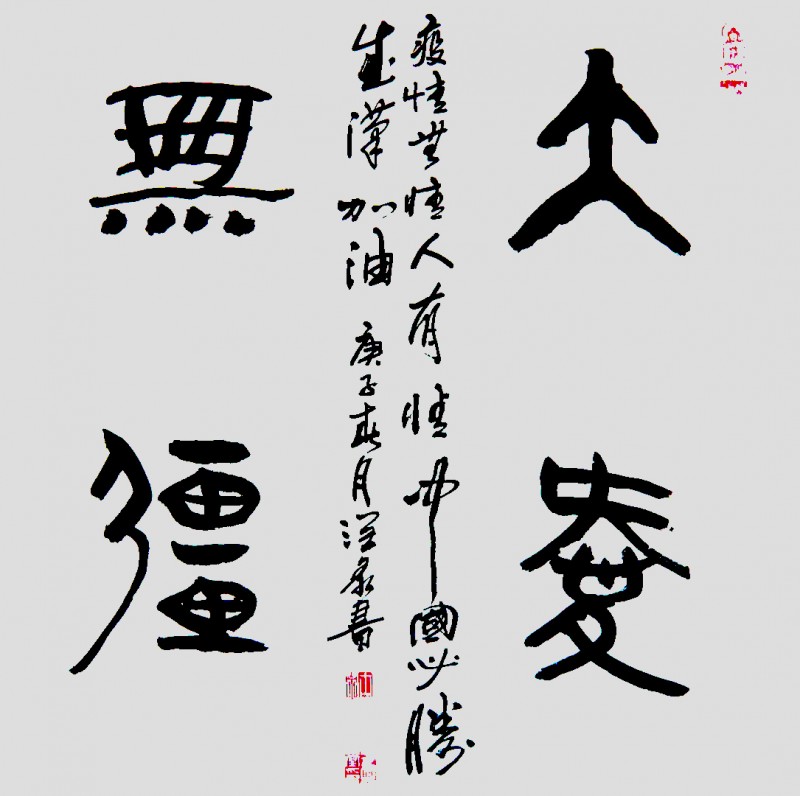 大愛
疫情無情人有情中國必勝
武漢加油 庚子春月泉書
無彊